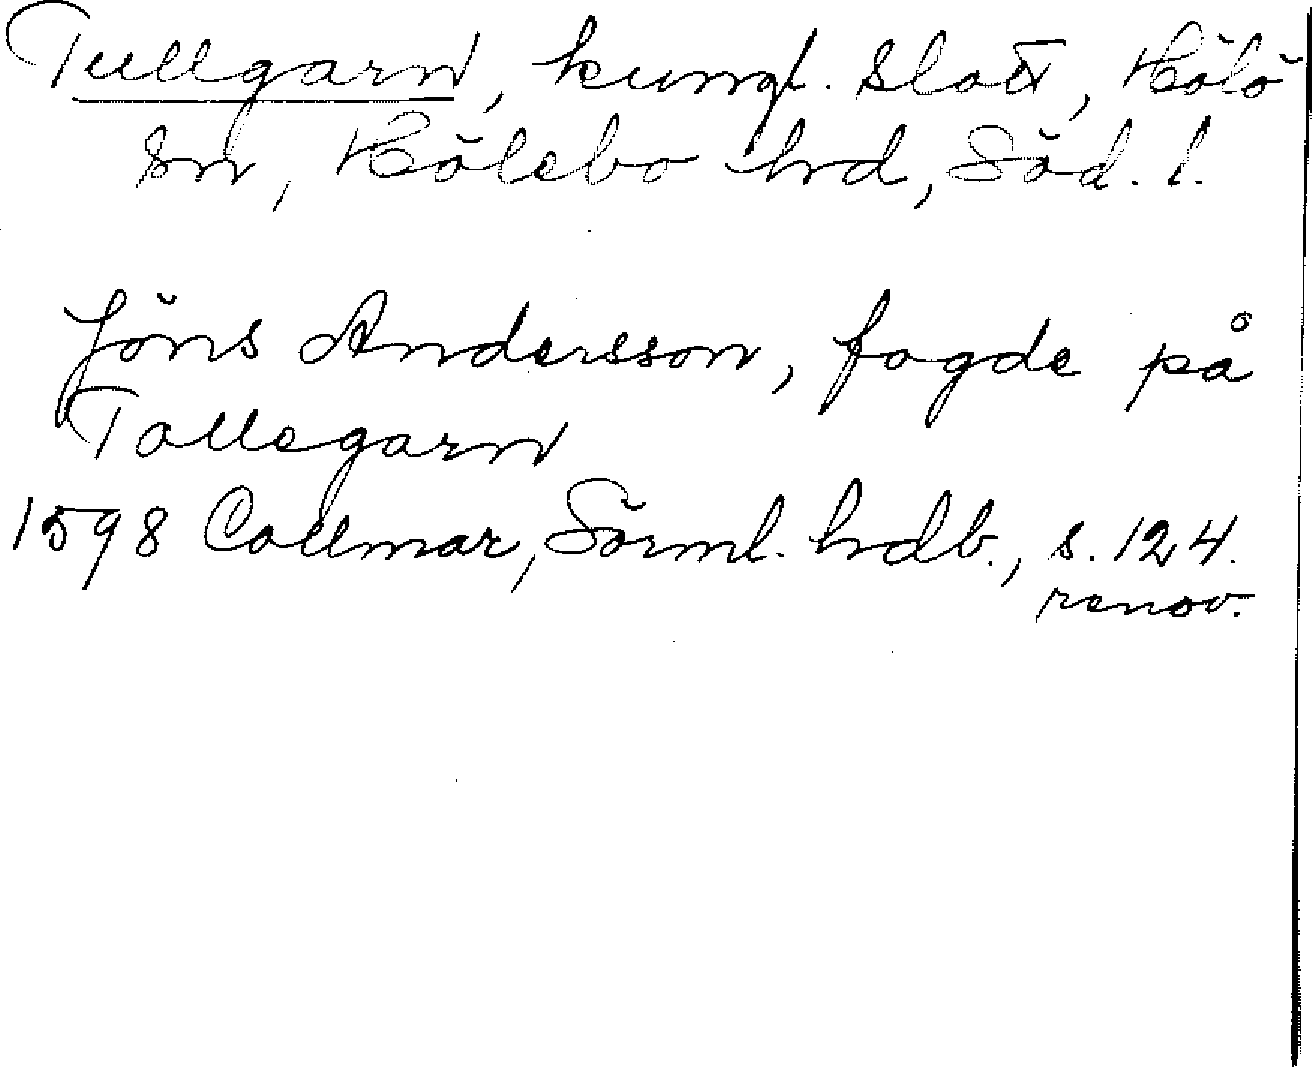 Tullgarn, kungl. slott, Hölö
sn, Hölebo hrd, Söd. l.
Jöns Andersson, fogde på
Tollegarn
1598 Collmar, Sörml. hrdb., s. 124.
renov.